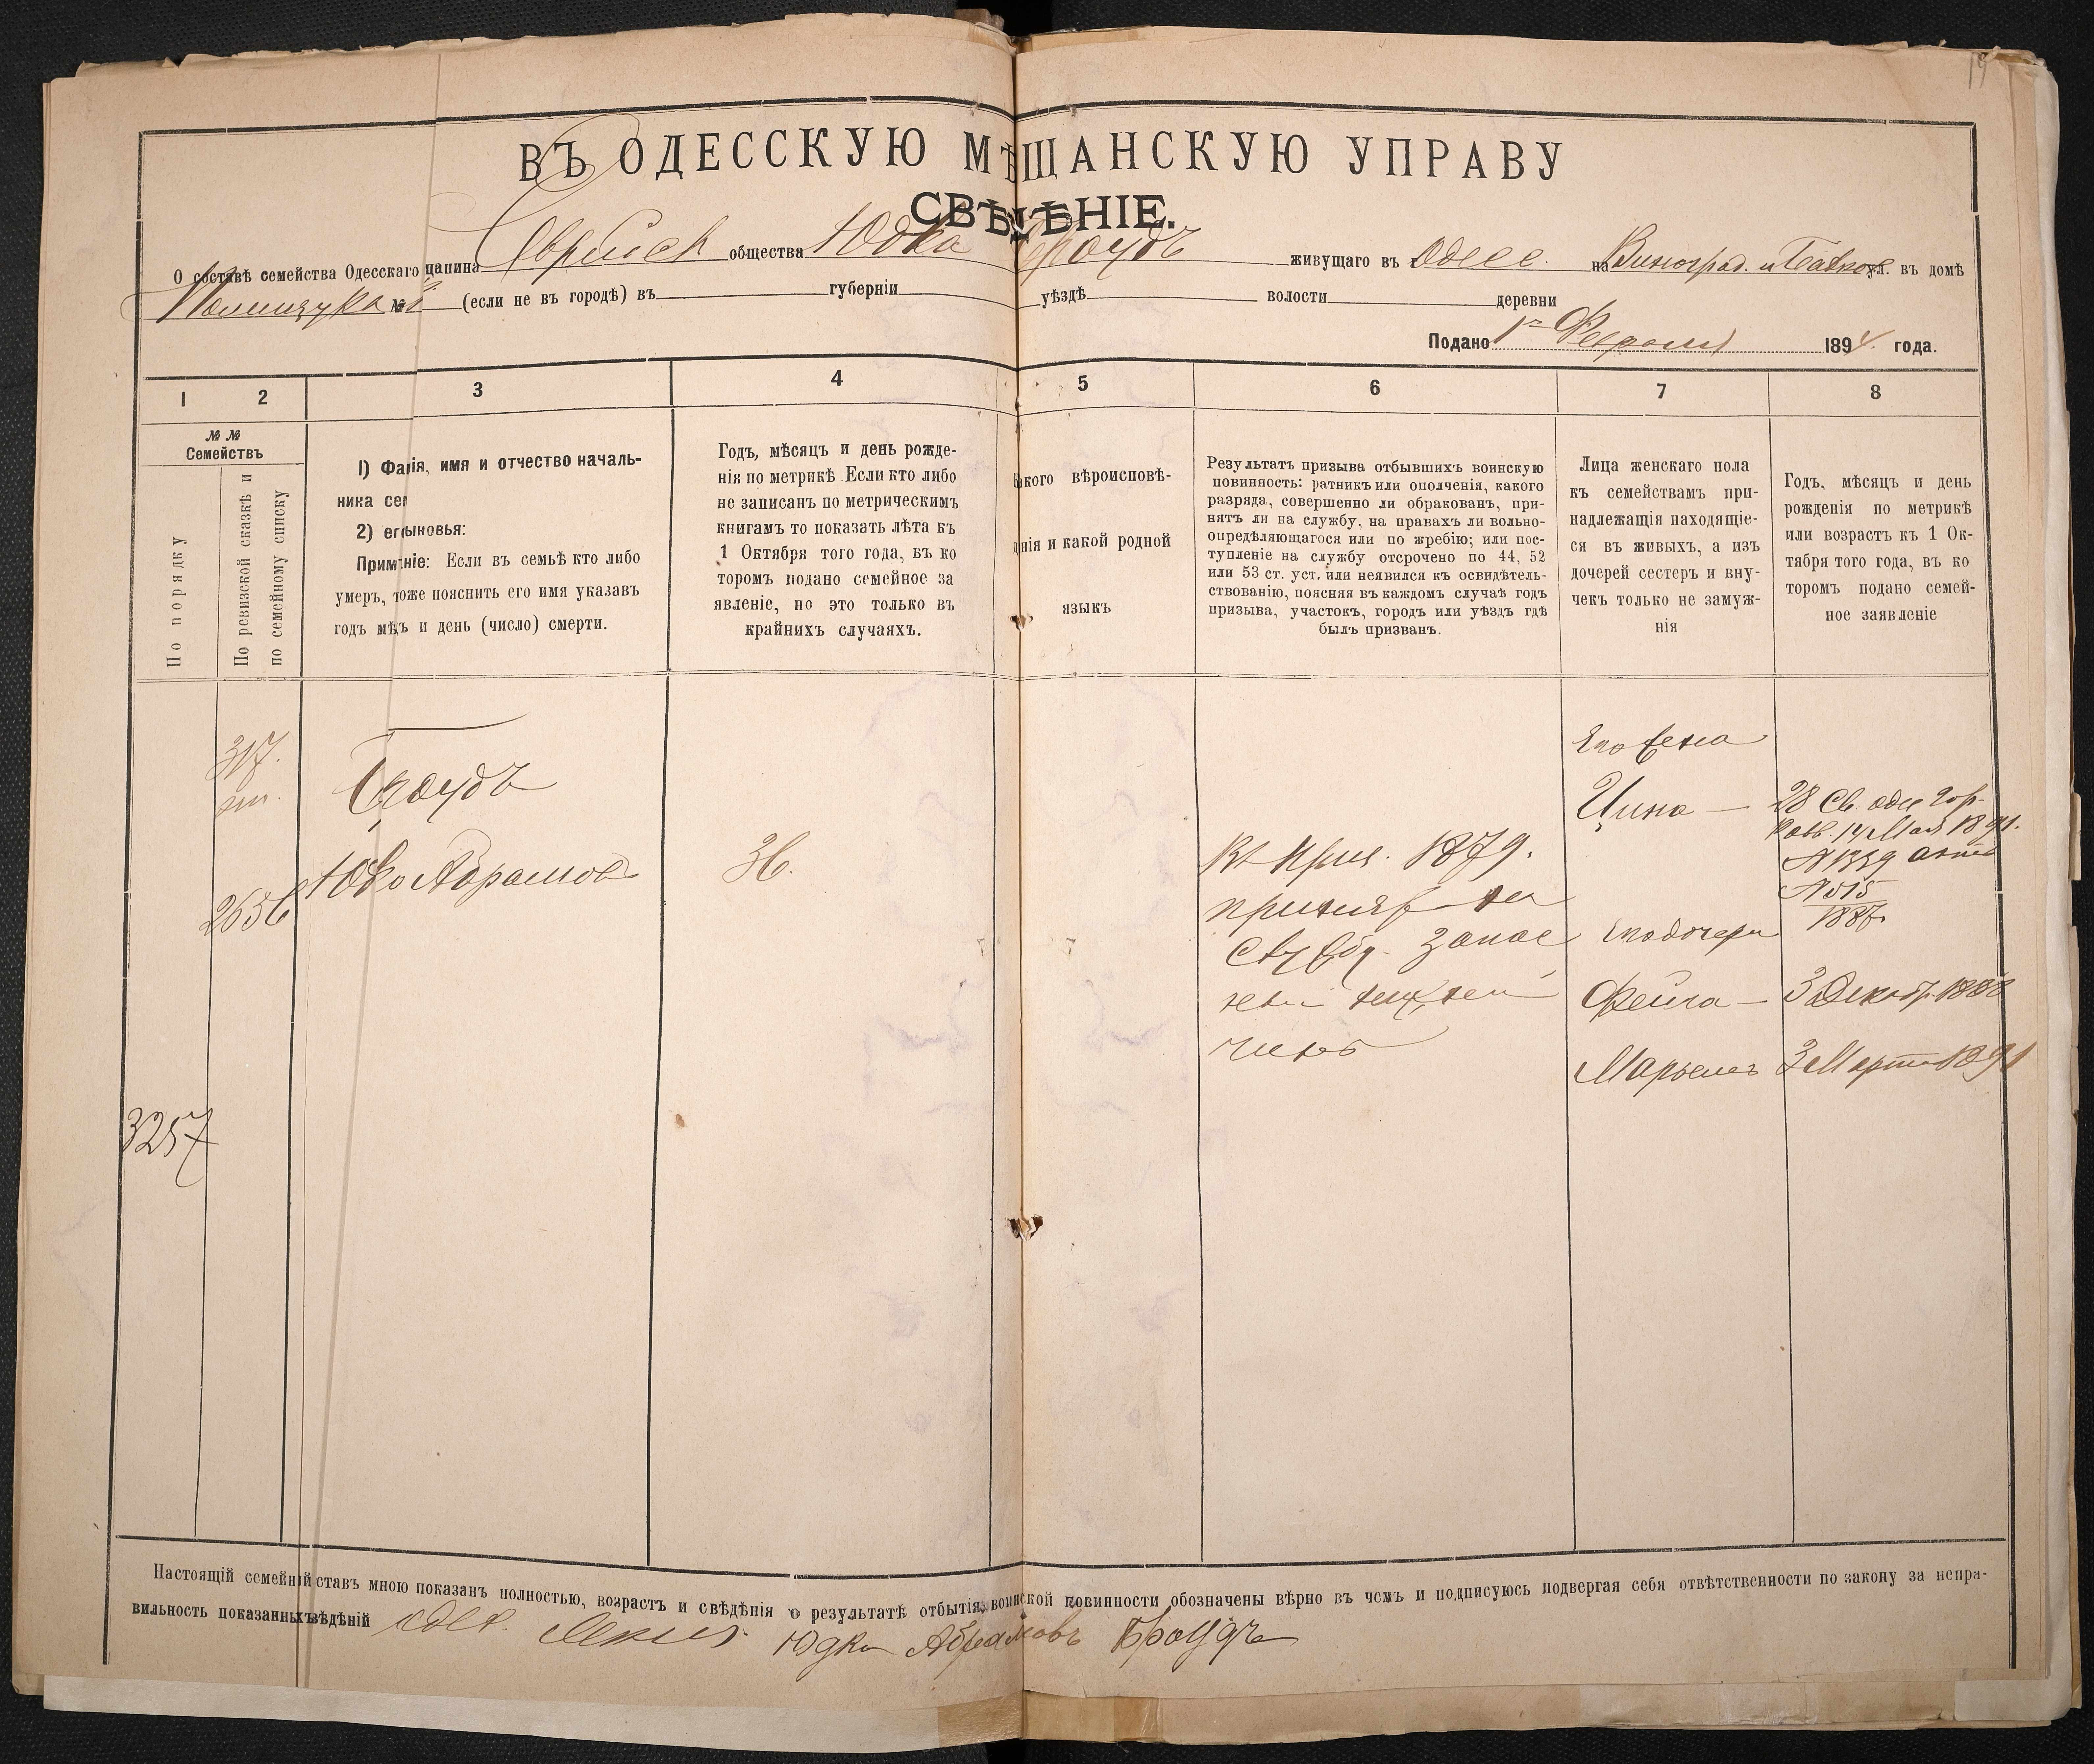 19
ВЪ ОДЕССКУЮ МѢЩАНСКУЮ УПРАВУ
СВѢДѢНІЕ.
О составѣ семейства Одесскаго щанина Еврейск общества Юдка Броудъ живущаго въ Одесс. на Виноград. и ул. въ домѣ
№ (если не въ городѣ) въ губерніи уѣздѣ волости деревни
Подано 1го Февраля 1894 года.
1 2 3 4 5 6 7 8
№ №
Семействъ
По порядку
По ревизской сказкѣ и
по семейному списку
1) Фа ія, имя и отчество началь-
ника сем
2) ег ыновья:
Прим ніе: Если въ семьѣ кто либо
умеръ, тоже пояснить его имя указавъ
годъ мѣ ъ и день (число) смерти.
Годъ, мѣсяцъ и день рожде-
нія по метрикѣ. Если кто либо
не записанъ по метрическимъ
книгамъ то показать лѣта къ
1 Октября того года, въ ко
торомъ подано семейное за
явленіе, но это только въ
крайнихъ случаяхъ.
акого вѣроисповѣ-
данія и какой родной
языкъ
Результатъ призыва отбывшихъ воинскую
повинность: ратникъ или ополченія, какого
разряда, совершенно ли обракованъ, при-
нятъ ли на службу, на правахъ ли вольно-
опредѣляющагося или по жребію; или пос-
тупленіе на службу отсрочено по 44, 52
или 53 ст. уст. или неявился къ освидѣтель-
ствованію, поясняя въ каждомъ случаѣ годъ
призыва, участокъ, городъ или уѣздъ гдѣ
былъ призванъ.
Лица женскаго пола
къ семействамъ при-
надлежащія находящіе-
ся въ живыхъ, а изъ
дочерей сестеръ и вну-
чекъ только не замуж-
нія
Годъ, мѣсяцъ и день
рожденія по метрикѣ
или возрастъ къ 1 Ок-
тября того года, въ ко
торомъ подано семей-
ное заявленіе
317.
Броудъ
2656 Юдко Абрамовъ
36.
Въ приз. 1879.
принятъ на
службу. Запас
ной
чинъ
Его жена
Цина — 28 Св. одес гор
равв. 14 Мая 1891.
№ 1339 актъ
№ 515
1887.
Его дочери
Фейга — 3 Декабр. 1888
Марьемъ 3 Марта 1891
3257
Настоящій семейній ставъ мною показанъ полностью, возрастъ и свѣдѣнія о результатѣ отбытія воинской повинности обозначены вѣрно въ чемъ и подписуюсь подвергая себя отвѣтственности по закону за непра-
вильность показанныхъ вѣдѣній Юдка Абрамовъ Броудъ